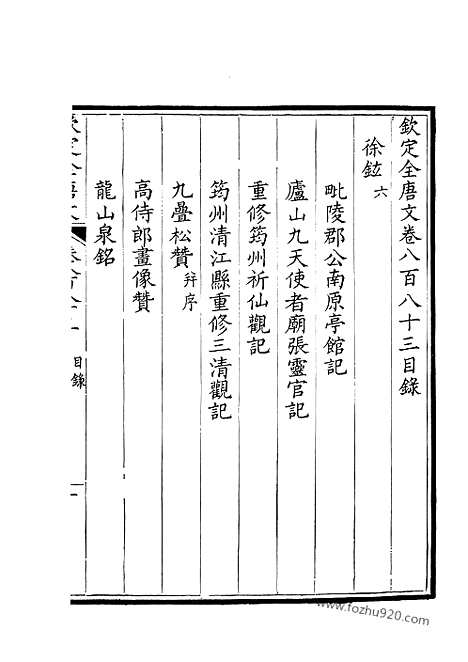 欽定全唐文卷八百八十三目錄
徐鉉 六
毗陵郡公南原亭館記
廬山九天使者廟張靈官記
重修筠州祈仙觀記
筠州清江縣重修三清觀記
九疊松贊 并序
高侍郎畫像贊
龍山泉銘
欽定全唐文
目錄
一
www.fozhu920.com